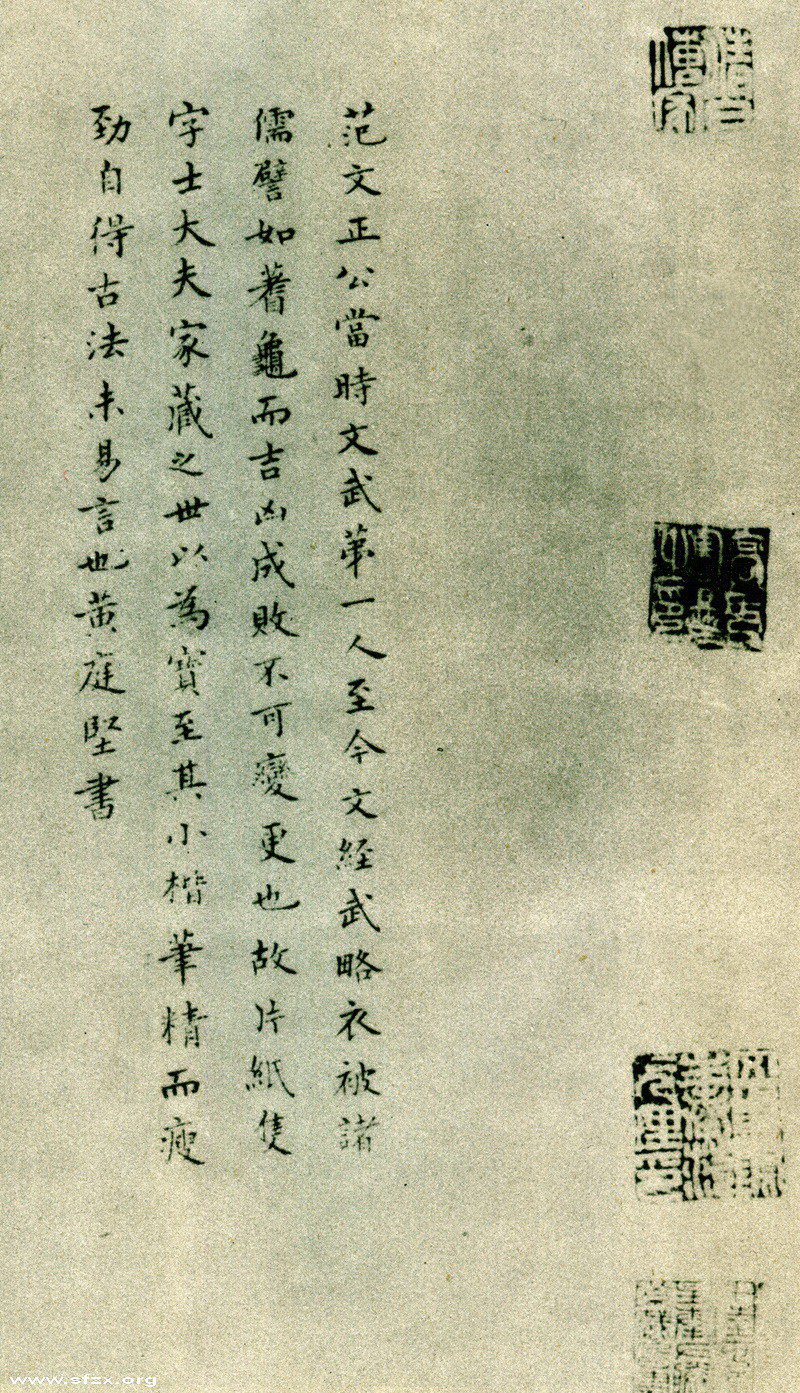 范文正公當時文武第一人至今文經武略衣被諸
儒譬如蓍龜而吉凶成敗不可變更也故片紙隻
字士大夫家藏之世以為寶至其小楷筆精而瘦
勁自得古法未易言也黃庭堅書
www.sfzx.org